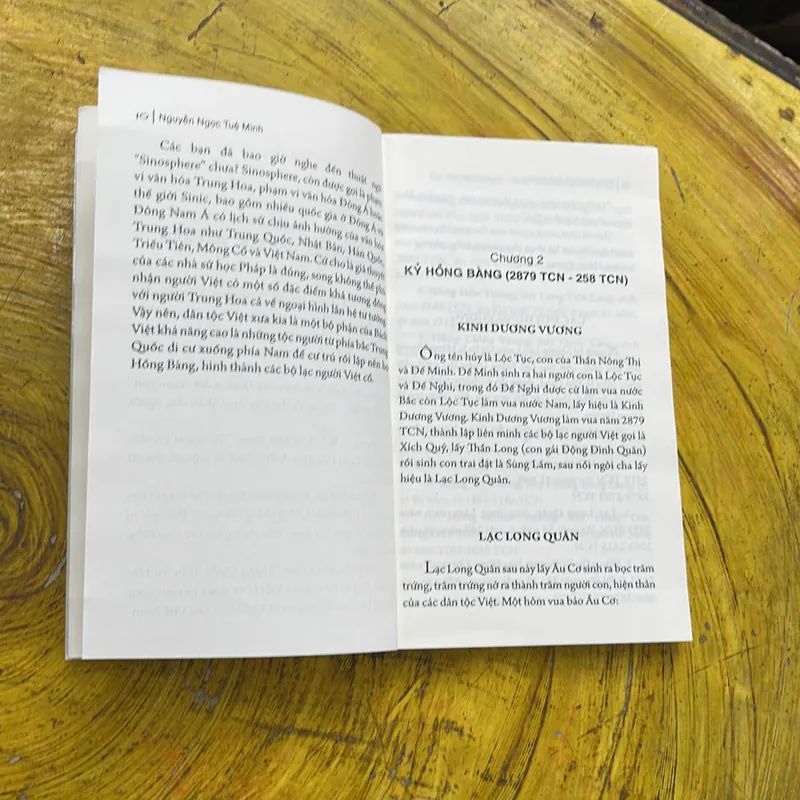 10 | Nguyễn Ngọc Tuệ Minh
Các bạn đã bao giờ nghe đến thuật ngữ
"Sinosphere" chưa? Sinosphere, còn được gọi là phạm
vi văn hóa Trung Hoa, phạm vi văn hóa Đông Á hoặc
thế giới Sinic, bao gồm nhiều quốc gia ở Đông Á và
Đông Nam Á có lịch sử chịu ảnh hưởng của văn hóa
Trung Hoa như Trung Quốc, Nhật Bản, Hàn Quốc,
Triều Tiên, Mông Cổ và Việt Nam. Cứ cho là giả thuyết
của các nhà sử học Pháp là đúng, song không thể phủ
nhận người Việt có một số đặc điểm khá tương đồng
với người Trung Hoa cả về ngoại hình lẫn hệ tư tưởng.
Vậy nên, dân tộc Việt xưa kia là một bộ phận của Bách
Việt khả năng cao là những tộc người từ phía bắc Trung
Quốc di cư xuống phía Nam để cư trú rồi lập nên họ
Hồng Bàng, hình thành các bộ lạc người Việt cổ.
Chương 2
KỶ HỒNG BÀNG (2879 TCN - 258 TCN)
KINH DƯƠNG VƯƠNG
Ông tên húy là Lộc Tục, con của Thần Nông Thị
và Đế Minh. Đế Minh sinh ra hai người con là Lộc Tục
và Đế Nghi, trong đó Đế Nghi được cử làm vua nước
Bắc còn Lộc Tục làm vua nước Nam, lấy hiệu là Kinh
Dương Vương. Kinh Dương Vương làm vua năm 2879
TCN, thành lập liên minh các bộ lạc người Việt gọi là
Xích Quỷ, lấy Thần Long (con gái Động Đình Quân)
rồi sinh con trai đặt là Sùng Lãm, sau nối ngôi cha lấy
hiệu là Lạc Long Quân.
LẠC LONG QUÂN
Lạc Long Quân sau này lấy Âu Cơ sinh ra bọc trăm
trứng, trăm trứng nở ra thành trăm người con, hiện thân
của các dân tộc Việt. Một hôm vua bảo Âu Cơ: